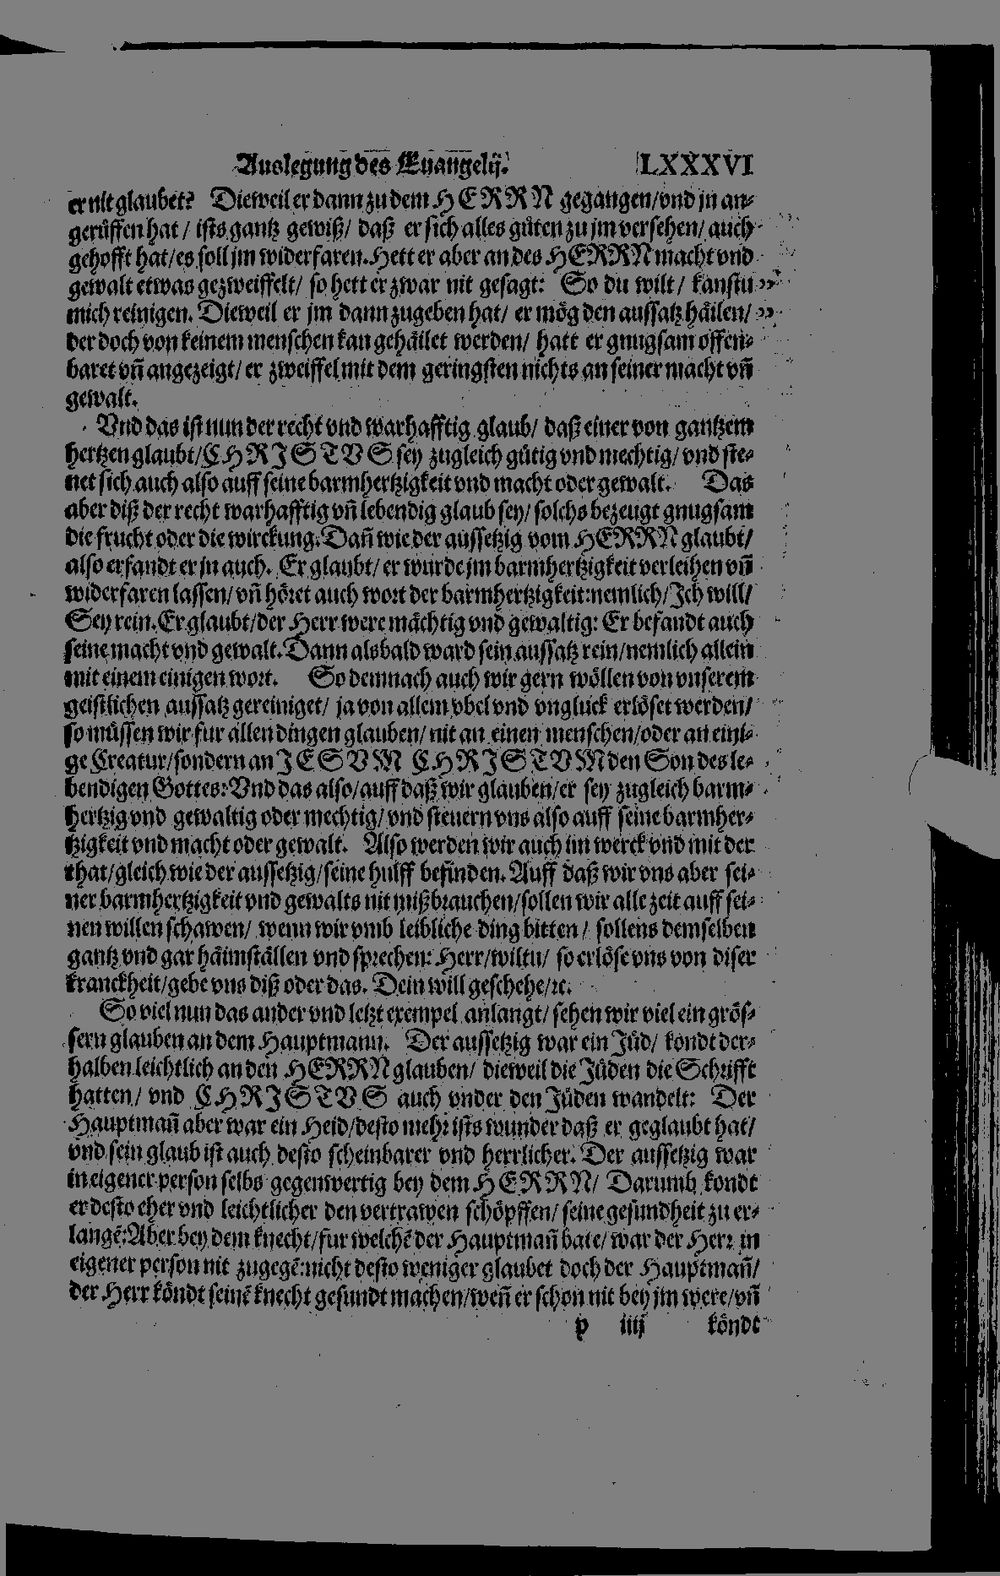 Auslegung des Euangelij. LXXXVI
er nit glaubet? Dieweil er dann zu dem HERRN gegangen/ vnd jn an-
gerüffen hat/ ists gantz gewiß/ daß er sich alles güten zu jm versehen/ auch
gehofft hat/ es soll jm widerfaren. Hett er aber an des HERRN macht vnd
gewalt etwas gezweiffelt/ so hett er zwar nit gesagt: So du wilt/ kanstu
mich reinigen. Dieweil er jm dann zugeben hat/ er mög den aussatz häilen/
der doch von keinem menschen kan gehäilet werden/ hatt er gnugsam offen-
baret vñ angezeigt/ er zweiffel mit dem geringsten nichts an seiner macht vñ
gewalt.
Vnd das ist nun der recht vnd warhafftig glaub/ daß einer von gantzem
hertzen glaubt/ CHRISTVS sey zugleich gütig vnd mechtig/ vnd ste-
net sich auch also auff seine barmhertzigkeit vnd macht oder gewalt. Das
aber diß der recht warhafftig vñ lebendig glaub sey/ solchs bezeugt gnugsam
die frucht oder die wirckung. Dañ wie der aussetzig vom HERRN glaubt/
also erfandt er jn auch. Er glaubt/ er wurde jm barmhertzigkeit verleihen vñ
widerfaren lassen/ vñ höret auch wort der barmhertzigkeit: nemlich/ Jch will/
Sey rein. Er glaubt/ der Herr were mächtig vnd gewaltig: Er befandt auch
seine macht vnd gewalt. Dann alsbald ward sein aussatz rein/ nemlich allein
mit einem einigen wort. So demnach auch wir gern wöllen von vnserem
geistlichen aussatz gereiniget/ ja von allem vbel vnd vnglück erlöset werden/
so müssen wir fur allen dingen glauben/ nit an einen menschen/ oder an eini-
ge Creatur/ sondern an JESVM CHRISTVM den Son des le-
bendigen Gottes: Vnd das also/ auff daß wir glauben/ er sey zugleich barm-
hertzig vnd gewaltig oder mechtig/ vnd steuern vns also auff seine barmher-
tzigkeit vnd macht oder gewalt. Also werden wir auch im werck vnd mit der
that/ gleich wie der aussetzig/ seine hülff befinden. Auff daß wir vns aber sei-
ner barmhertzigkeit vnd gewalts nit mißbrauchen/ sollen wir alle zeit auff sei-
nen willen schawen/ wenn wir vmb leibliche ding bitten/ sollens demselben
gantz vnd gar häimställen vnd sprechen: Herr/ wiltu/ so erlöse vns von diser
kranckheit/ gebe vns diß oder das. Dein will geschehe/ ꝛc.
So viel nun das ander vnd letzt exempel anlangt/ sehen wir viel ein grös-
sern glauben an dem Hauptmann. Der aussetzig war ein Jüd/ kondt der-
halben leichtlich an den HERRN glauben/ dieweil die Jüden die Schrifft
hatten/ vnd CHRISTVS auch vnder den Jüden wandelt: Der
Hauptmañ aber war ein Heid/ desto mehr ists wunder daß er geglaubt hat/
vnd sein glaub ist auch desto scheinbarer vnd herrlicher. Der aussetzig war
in eigener person selbs gegenwertig bey dem HERRN/ Darumb kondt
er desto eher vnd leichtlicher den vertrawen schöpffen/ seine gesundheit zu er-
langẽ: Aber bey dem knecht/ fur welchẽ der Hauptmañ bate/ war der Herr in
eigener person nit zugegẽ: nicht desto weniger glaubet doch der Hauptmañ/
der Herr köndt seinẽ knecht gesundt machen/ weñ er schon nit bey jm were/ vñ
p iiij köndt